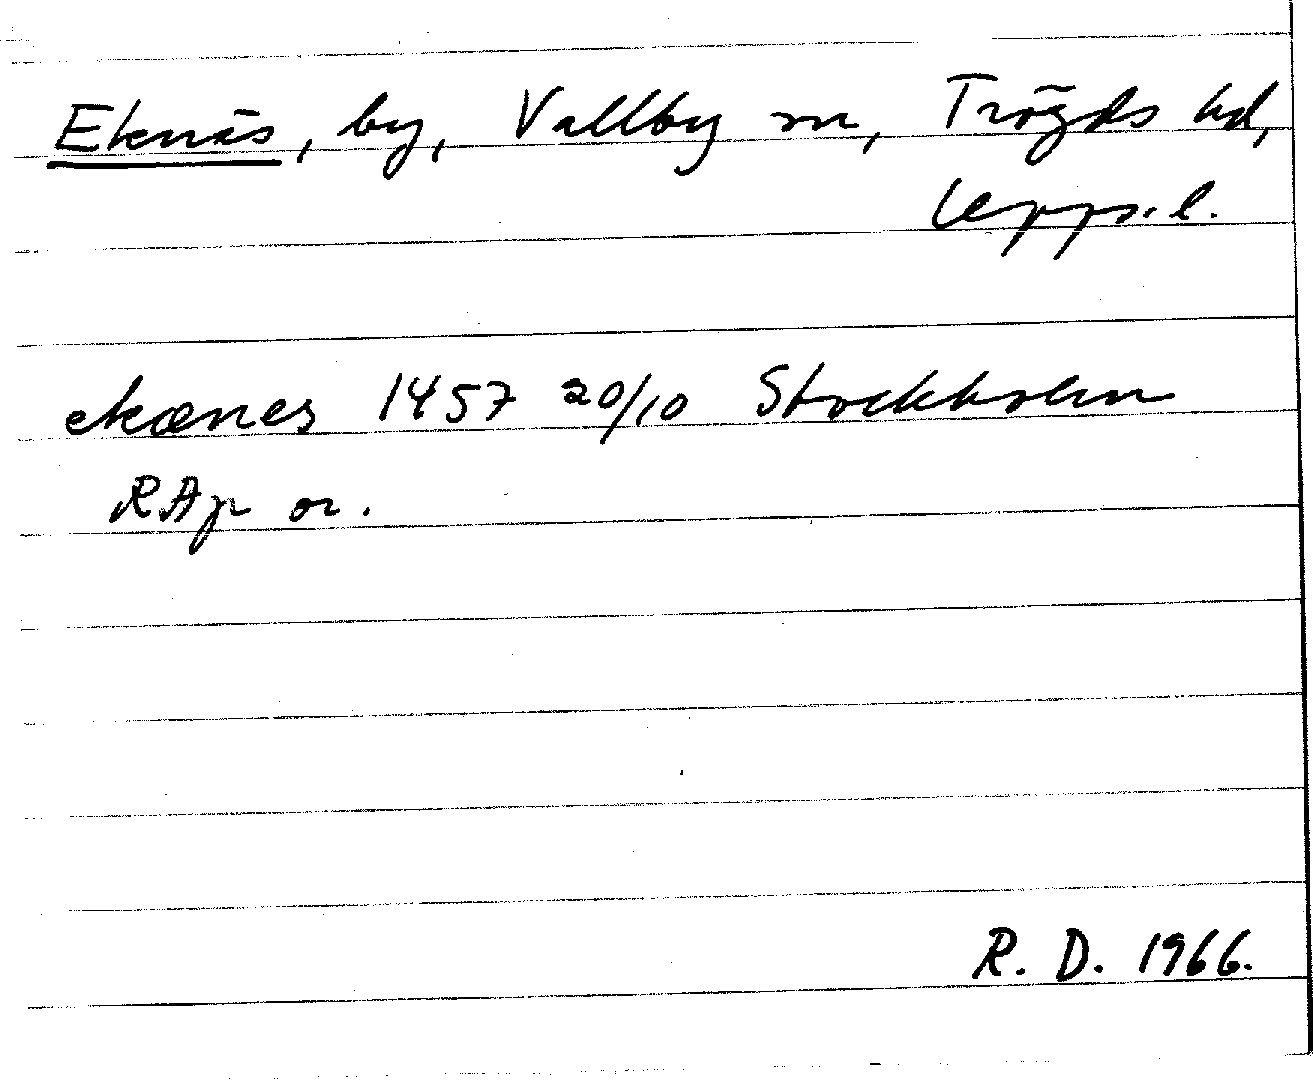 Eknäs, by, Vallby sn, Trögds hd,
Upps. l.
ekænes 1457 20/10 Stockholm
RAp or.
R. D. 1966.